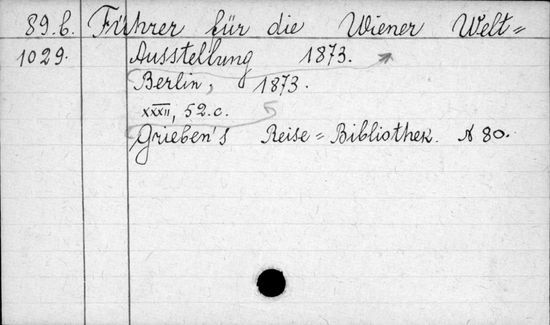 89.b. Führer für die Wiener Welt=
1029. Ausstellung 1873.
Berlin, 1873.
XXXII, 52.c.
Grieben's Reise=Bibliothek. N 80.